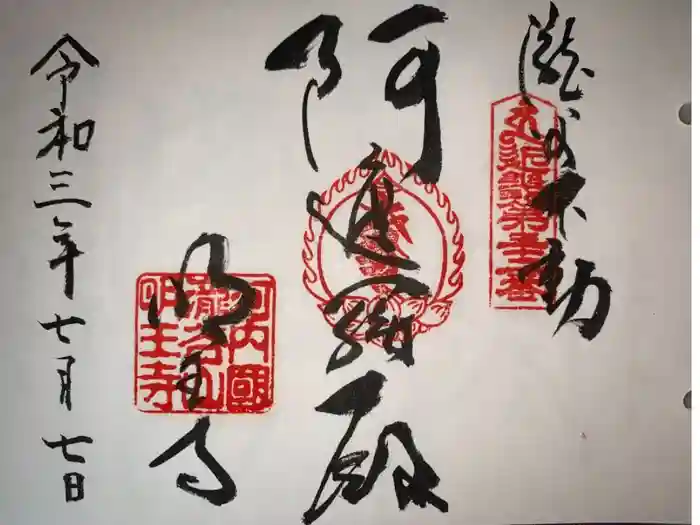 瀧谷不動
阿遮羅殿
明王寺
河内國
瀧谷山
明王寺
令和三年七月七日